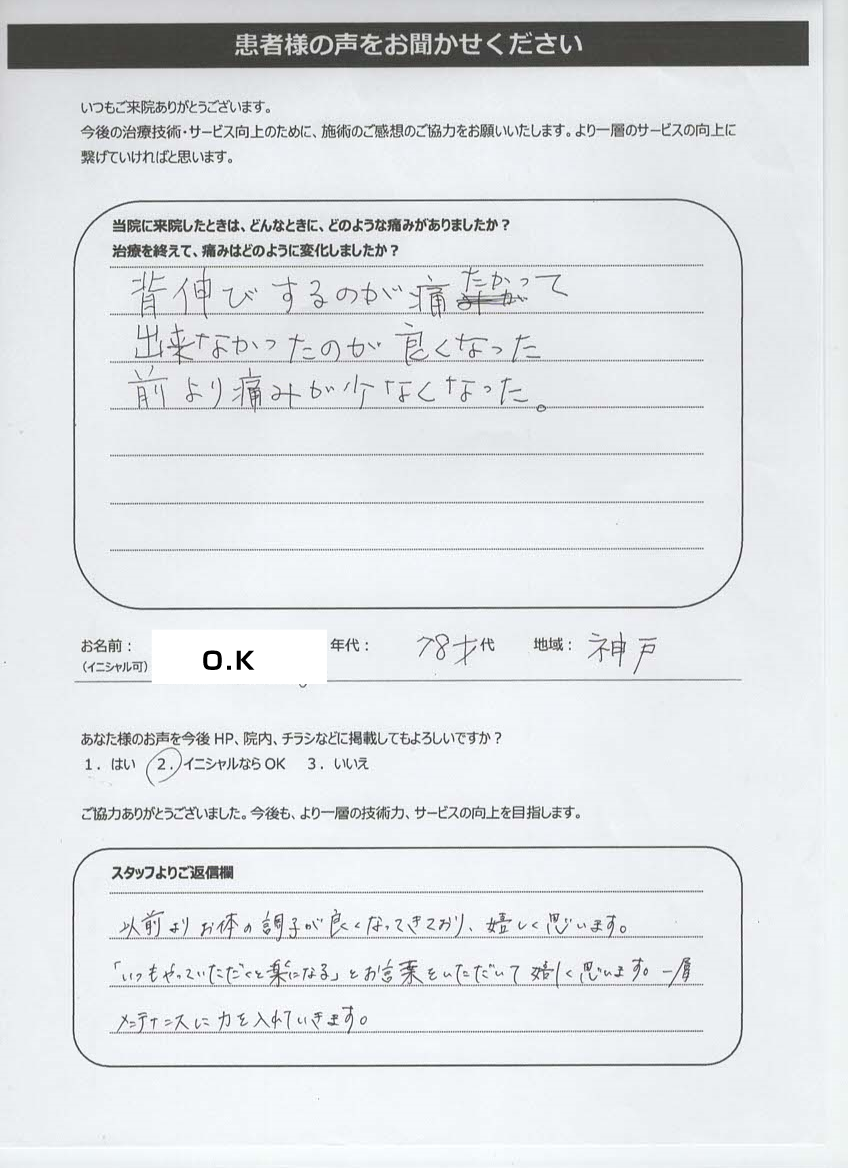 患者様の声をお聞かせください
いつもご来院ありがとうございます。
今後の治療技術・サービス向上のために、施術のご感想のご協力をお願いいたします。より一層のサービスの向上に
繋げていければと思います。
当院に来院したときは、どんなときに、どのような痛みがありましたか？
治療を終えて、痛みはどのように変化しましたか？
背伸びするのが痛たかって
出来なかったのが良くなった
前より痛みが少なくなった。
お名前： O.K 年代： 78才代 地域： 神戸
（イニシャル可）
あなた様のお声を今後 HP、院内、チラシなどに掲載してもよろしいですか？
１．はい ２．イニシャルなら OK ３．いいえ
ご協力ありがとうございました。今後も、より一層の技術力、サービスの向上を目指します。
スタッフよりご返信欄
以前よりお体の調子が良くなってきており、嬉しく思います。
「いつもやっていただくと楽になる」とお言葉をいただいて嬉しく思います。一層
メンテナンスに力を入れていきます。